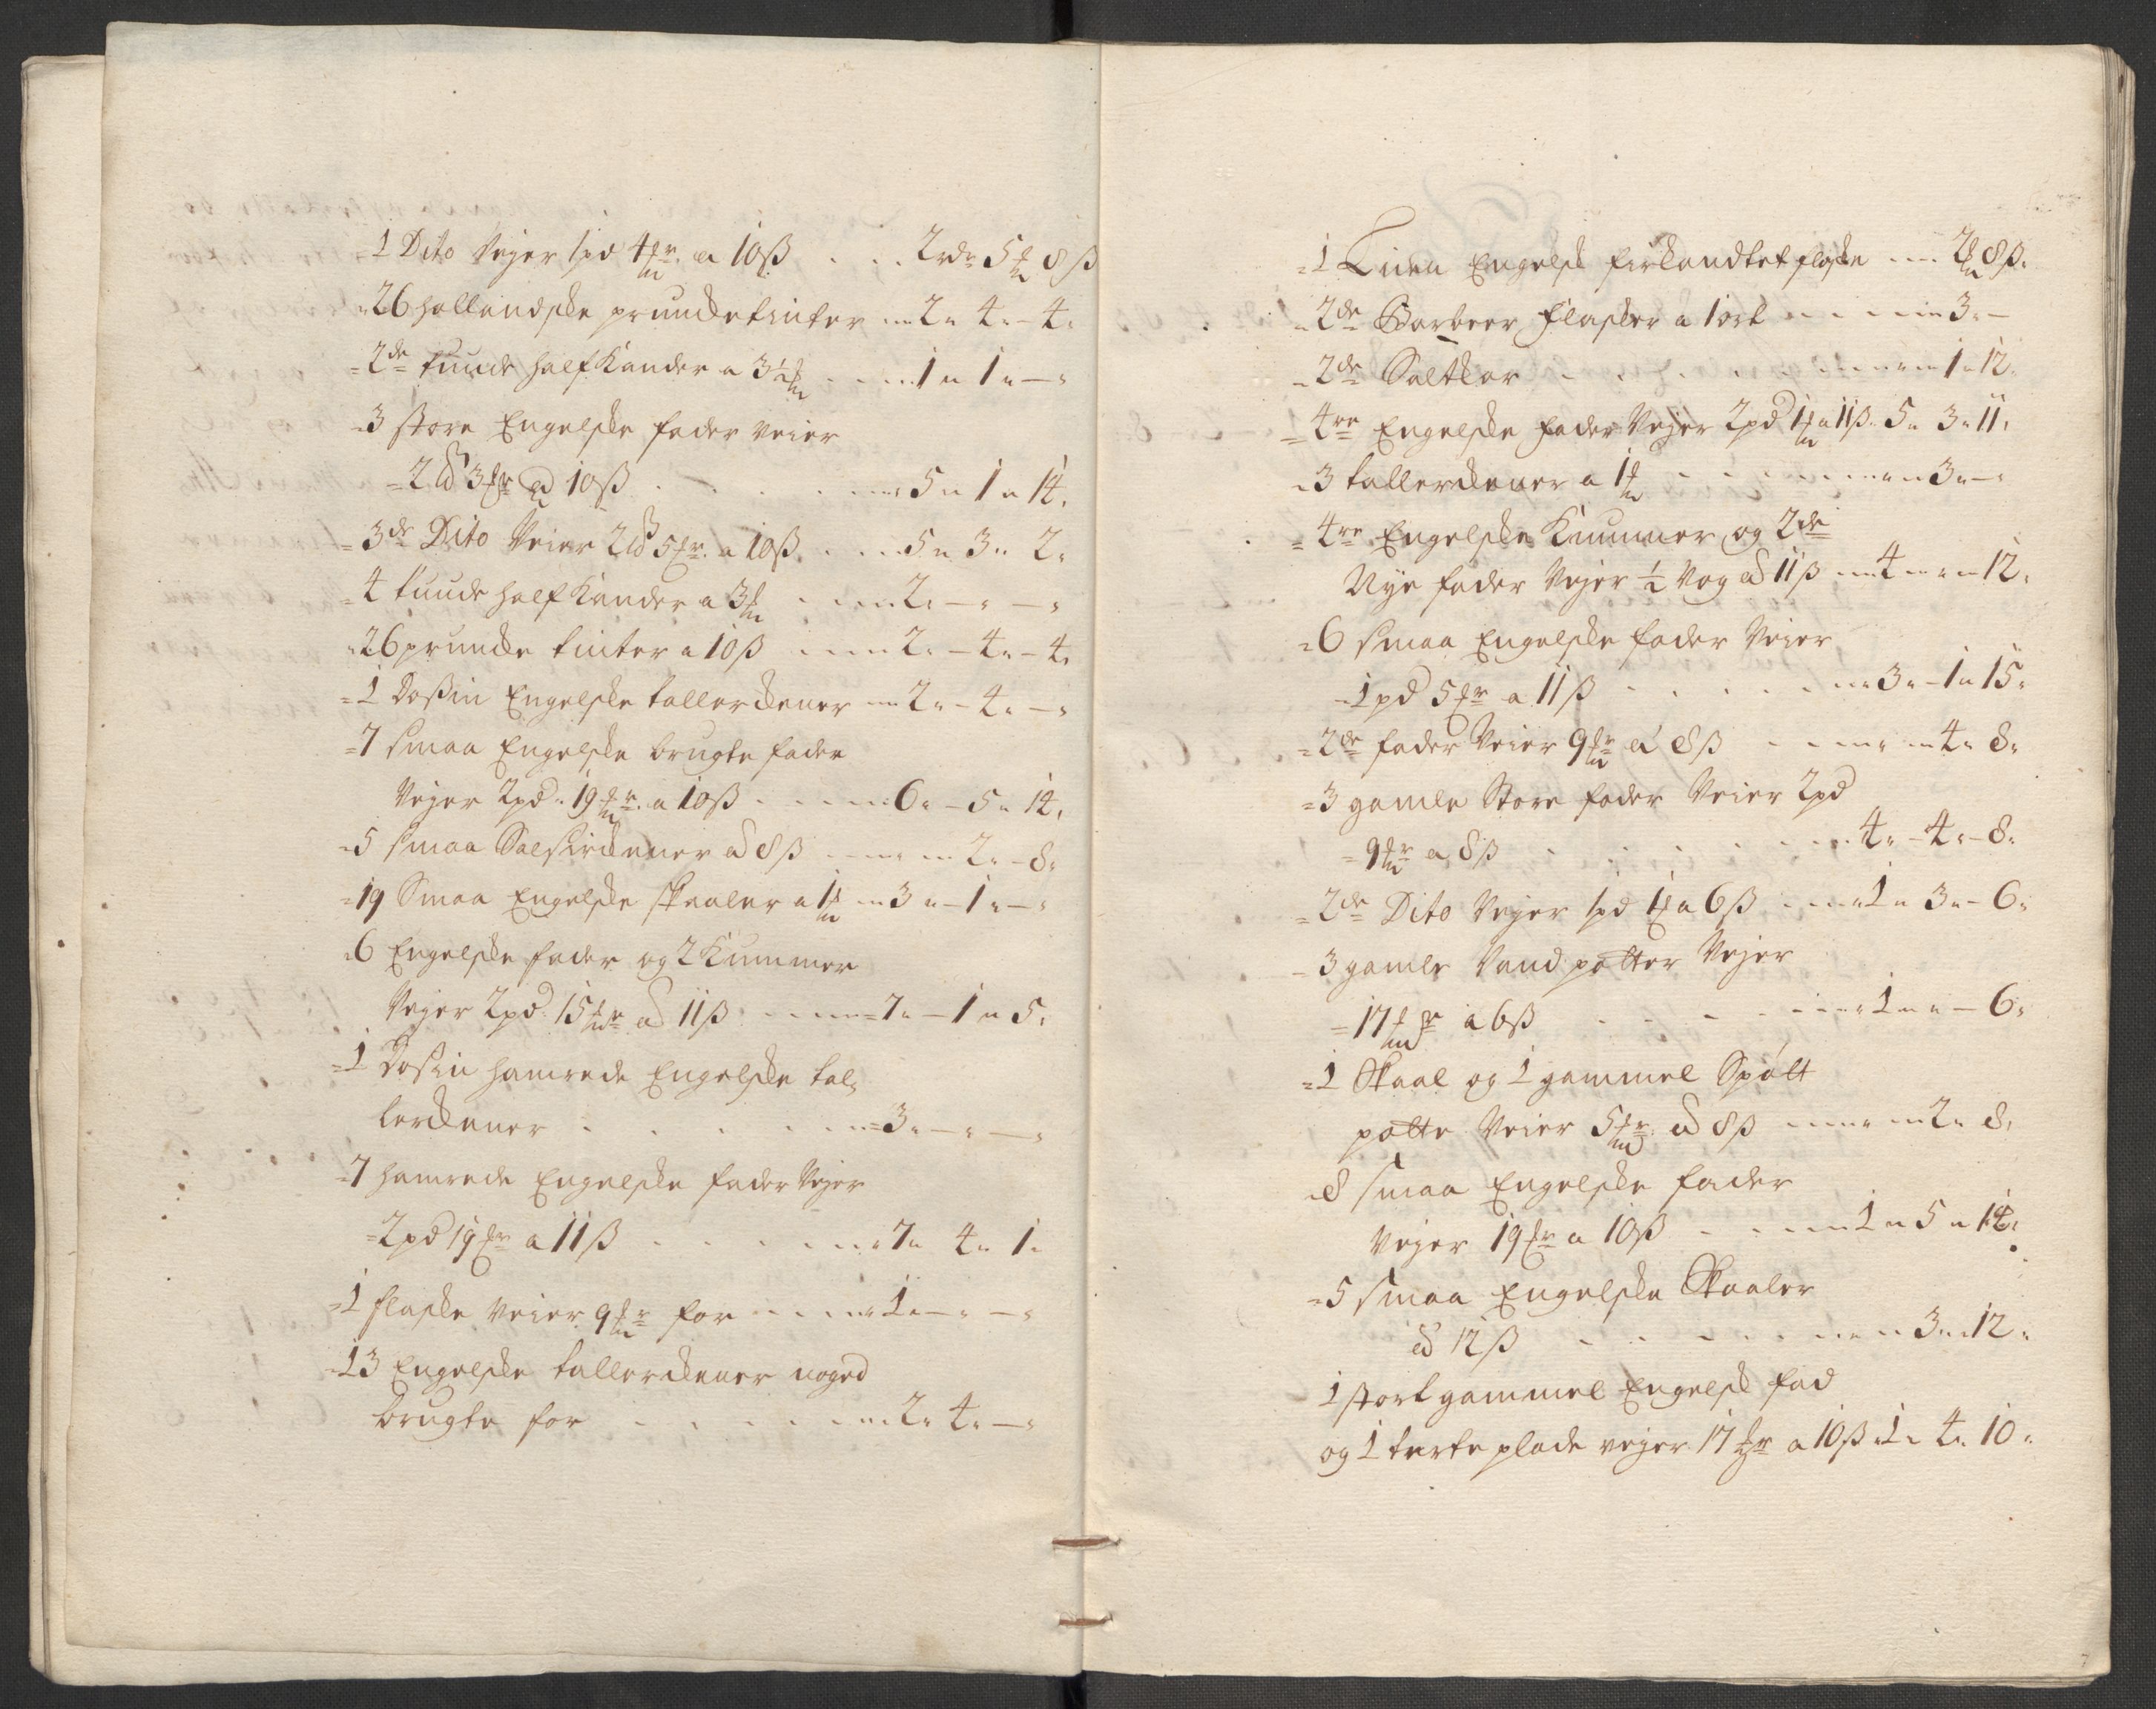 1 Dito Vejer 1pd 4 mr. a 10ß . . . 2 rdr 5 m 8 ß
26 hollandske prunketinter 2 „ 4 „ 4 „
2de runde half Kander a 3½ m . . . 1 „ 1 „ — „
3 store Engelske fader veier
2 pd 3 mr ad 10ß . . . 5 „ 1 „ 14 „
3de Dito Veier 2 pd 5 mr. a 10ß . . . 5 „ 3 „ 2 „
4 runde half Kander a 3 m . . . 2 „ — „ — „
26 prunke tinter a 10ß . . . 2 „ — 4 „ — 4 „
1 Dosin Engelske tallerckener 2 „ — 4 „ — „
7 smaa Engelske brugte fader
Vejer 2pd „ 19 mr. a 10ß . . . 6 „ — 5 „ 14 „
5 smaa Salsirckener ad 8ß . . . 2 „ — 8 „
19 Smaa Engelske skaaler a 1 m 3 „ — 1 „ — „
6 Engelske fader og 2 Kummer
Vejer 2pd 15 mr ad 11ß . . . 7 „ — 1 „ 5 „
1 Dosin hamrede Engelske tal-
lerckener . . . 3 „ — „ — „
7 hamrede Engelske fader Vejer
2pd 19 mr a 11ß . . . 7 „ 4 „ 1 „
1 flaske veier 9 mr for . . . 1 „ — „ — „
13 Engelske tallerckener noged
brugte for . . . 2 „ 4 „ — „
1 Liden Engelsk firkandtet flaske . . . 2 m 8ß „
2de Barbeer flasker a 1 ort . . . 3 „ —
2de Saltkar . . . 1 „ 12 „
4re Engelske fader Vejer 2pd 1 m a 11ß „ 5 „ 3 „ 11 „
3 tallerckener a 1 m . . . 3 „ — „
4re Engelske Kummer og 2de
Nye fader Vejer ½ Vog ad 11ß . . . 4 „ „ 12 „
6 smaa Engelske fader Veier
1pd 5 mr a 11ß . . . 3 „ — 1 „ 15 „
2de fader Veier 9 mr ad 8ß . . . 4 „ 8 „
3 gamle Store fader Veier 2pd
9 mr a 8ß . . . 4 „ — 4 „ — 8 „
2de Dito Vejer 1pd 1 m a 6ß . . . 1 „ 3 „ — 6 „
3 gamle Vand potter Vejer
17 mr a 6ß . . . 1 „ „ — 6 „
1 Skaal og 1 gammel Spölt
potte Veier 5 mr ad 8ß . . . 2 „ 8 „
8 smaa Engelske fader
Vejer 19 mr a 10ß . . . 1 „ 5 „ 14 „
5 smaa Engelske Skaaler
ad 12ß . . . 3 „ 12 „
1 stort gammel Engelsk fad
og 1 terte plade vejer 17 mr a 10ß 1 „ 4 „ 10 „